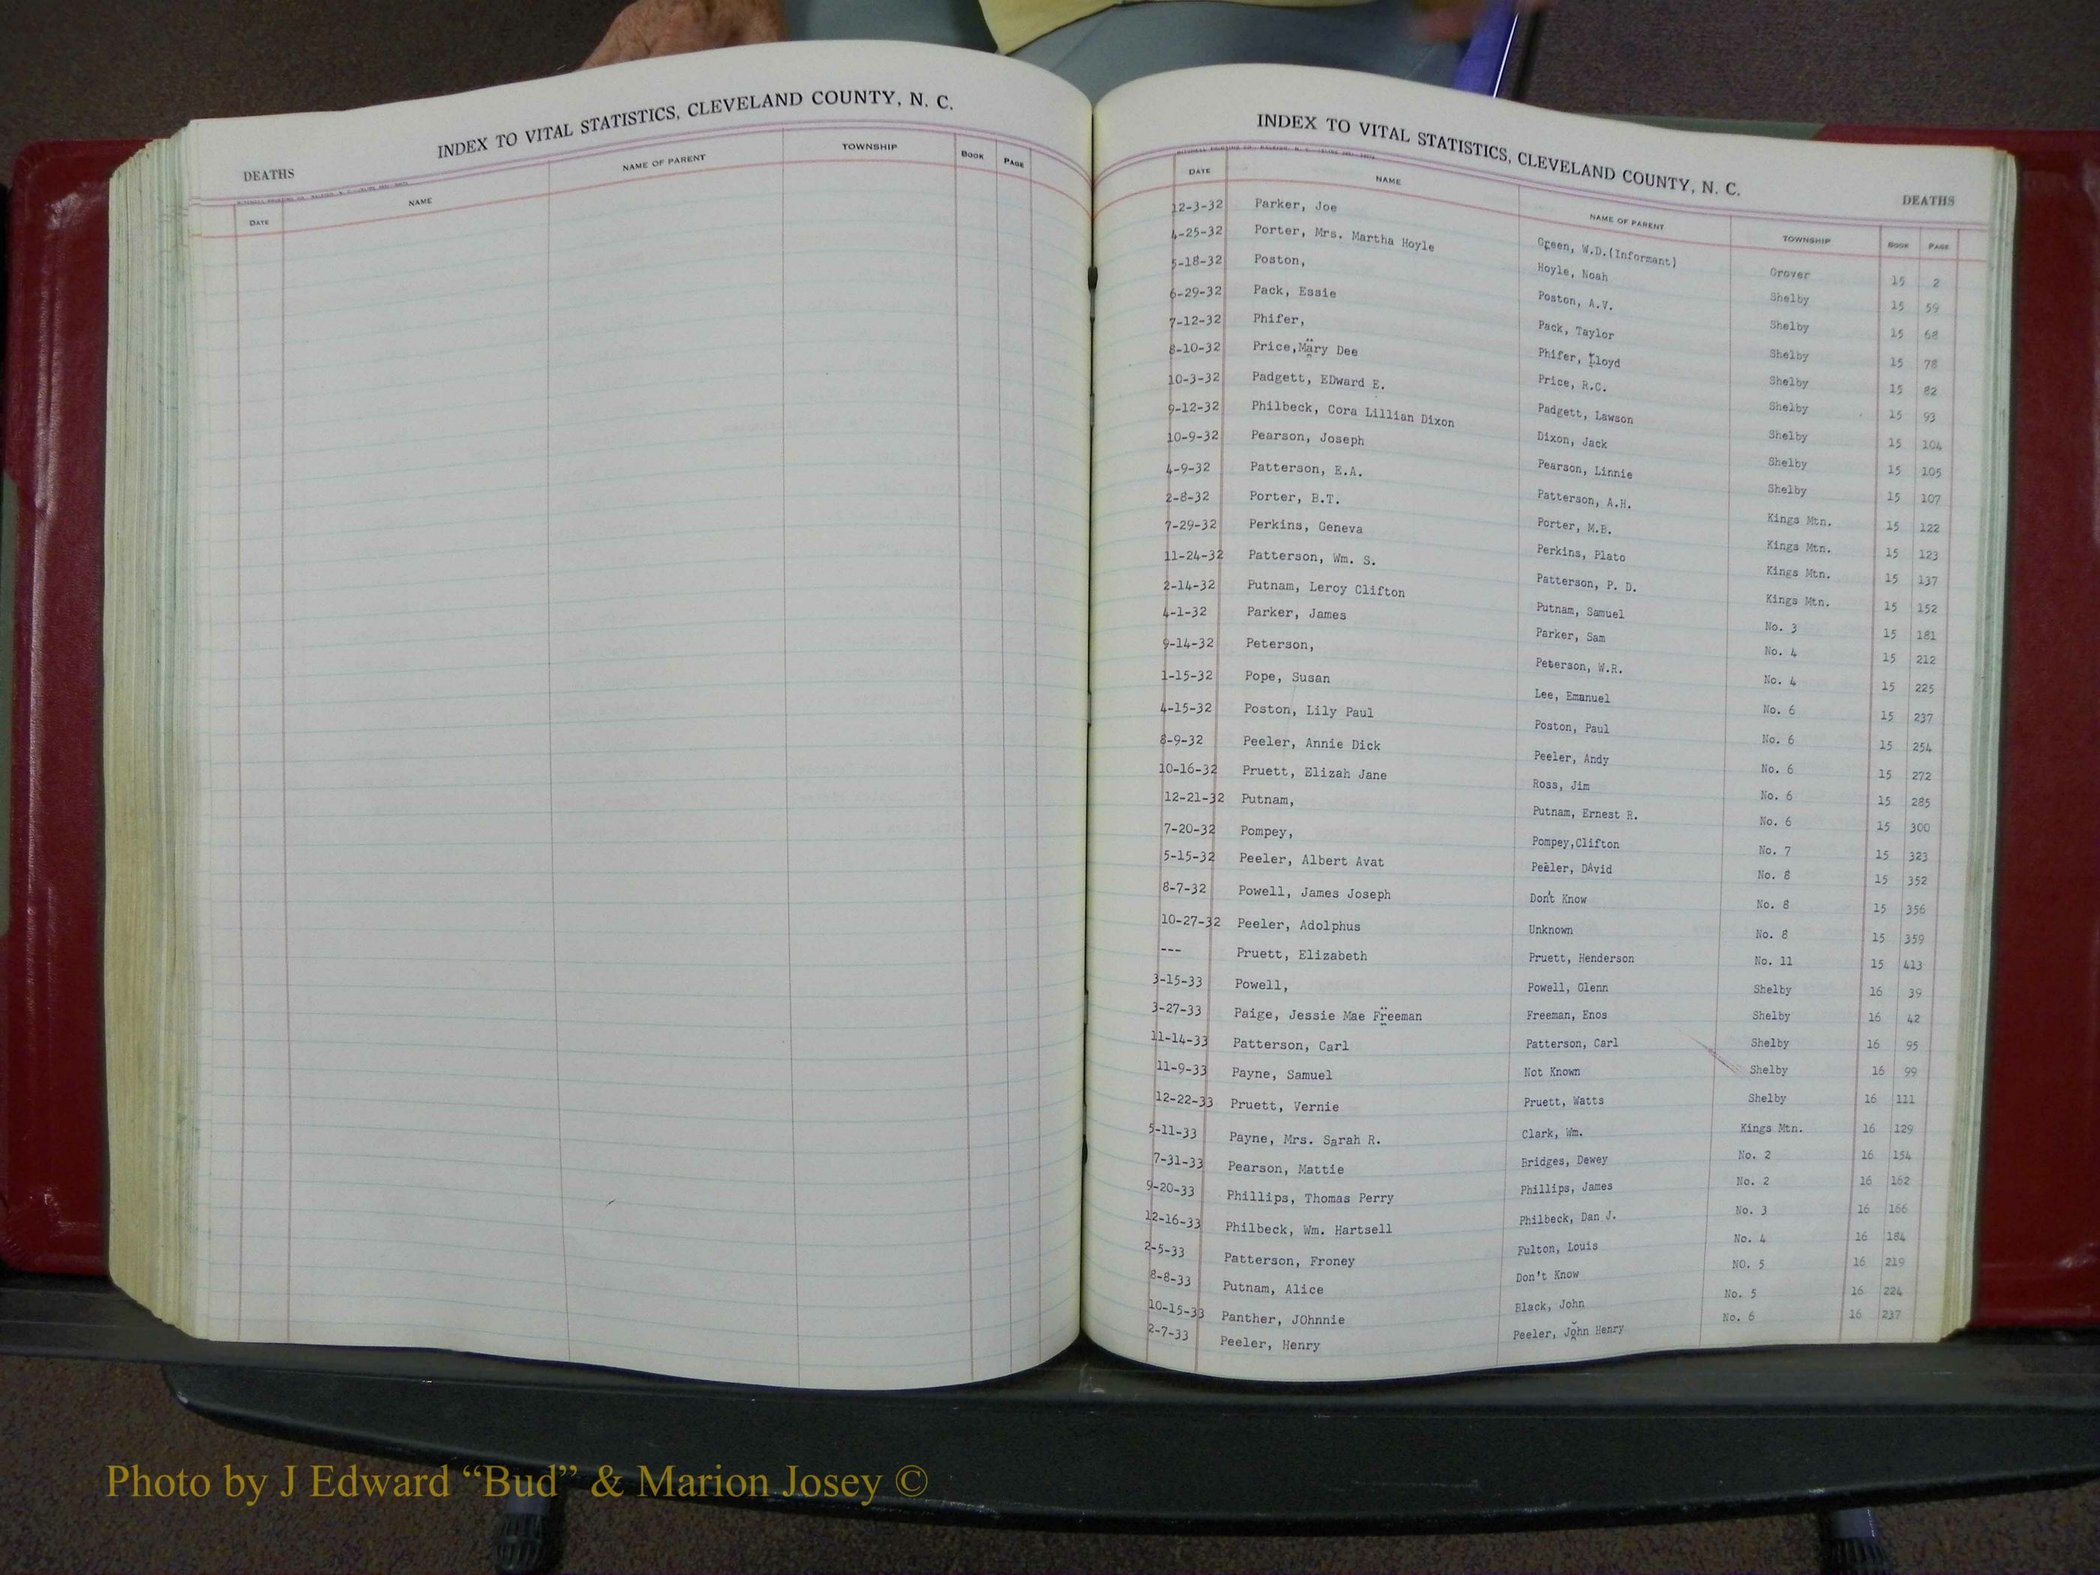 INDEX TO VITAL STATISTICS, CLEVELAND COUNTY, N. C.
DEATHS
DATE NAME NAME OF PARENT TOWNSHIP BOOK PAGE
INDEX TO VITAL STATISTICS, CLEVELAND COUNTY, N. C.
DEATHS
DATE NAME NAME OF PARENT TOWNSHIP BOOK PAGE
12-3-32 Parker, Joe Green, W.D.(Informant) Grover 15 2
4-25-32 Porter, Mrs. Martha Hoyle Hoyle, Noah Shelby 15 59
5-18-32 Poston, Poston, A.V. Shelby 15 68
6-29-32 Pack, Essie Pack, Taylor Shelby 15 78
7-12-32 Phifer, Phifer, Lloyd Shelby 15 82
8-10-32 Price,Mary Dee Price, R.C. Shelby 15 93
10-3-32 Padgett, EDward E. Padgett, Lawson Shelby 15 104
9-12-32 Philbeck, Cora Lillian Dixon Dixon, Jack Shelby 15 105
10-9-32 Pearson, Joseph Pearson, Linnie Shelby 15 107
4-9-32 Patterson, E.A. Patterson, A.H. Kings Mtn. 15 122
2-8-32 Porter, B.T. Porter, M.B. Kings Mtn. 15 123
7-29-32 Perkins, Geneva Perkins, Plato Kings Mtn. 15 137
11-24-32 Patterson, Wm. S. Patterson, P. D. Kings Mtn. 15 152
2-14-32 Putnam, Leroy Clifton Putnam, Samuel No. 3 15 181
4-1-32 Parker, James Parker, Sam No. 4 15 212
9-14-32 Peterson, Peterson, W.R. No. 4 15 225
1-15-32 Pope, Susan Lee, Emanuel No. 6 15 237
4-15-32 Poston, Lily Paul Poston, Paul No. 6 15 254
8-9-32 Peeler, Annie Dick Peeler, Andy No. 6 15 272
10-16-32 Pruett, Elizah Jane Ross, Jim No. 6 15 285
12-21-32 Putnam, Putnam, Ernest R. No. 6 15 300
7-20-32 Pompey, Pompey,Clifton No. 7 15 323
5-15-32 Peeler, Albert Avat Peeler, DAvid No. 8 15 352
8-7-32 Powell, James Joseph Don't Know No. 8 15 356
10-27-32 Peeler, Adolphus Unknown No. 8 15 359
--- Pruett, Elizabeth Pruett, Henderson No. 11 15 413
3-15-33 Powell, Powell, Glenn Shelby 16 39
3-27-33 Paige, Jessie Mae Freeman Freeman, Enos Shelby 16 42
11-14-33 Patterson, Carl Patterson, Carl Shelby 16 95
11-9-33 Payne, Samuel Not Known Shelby 16 99
12-22-33 Pruett, Vernie Pruett, Watts Shelby 16 111
5-11-33 Payne, Mrs. Sarah R. Clark, Wm. Kings Mtn. 16 129
7-31-33 Pearson, Mattie Bridges, Dewey No. 2 16 154
9-20-33 Phillips, Thomas Perry Phillips, James No. 2 16 162
12-16-33 Philbeck, Wm. Hartsell Philbeck, Dan J. No. 3 16 166
2-5-33 Patterson, Froney Fulton, Louis No. 4 16 184
8-8-33 Putnam, Alice Don't Know NO. 5 16 219
10-15-33 Panther, JOhnnie Black, John No. 5 16 224
2-7-33 Peeler, Henry Peeler, John Henry No. 6 16 237
Photo by J Edward “Bud” & Marion Josey ©